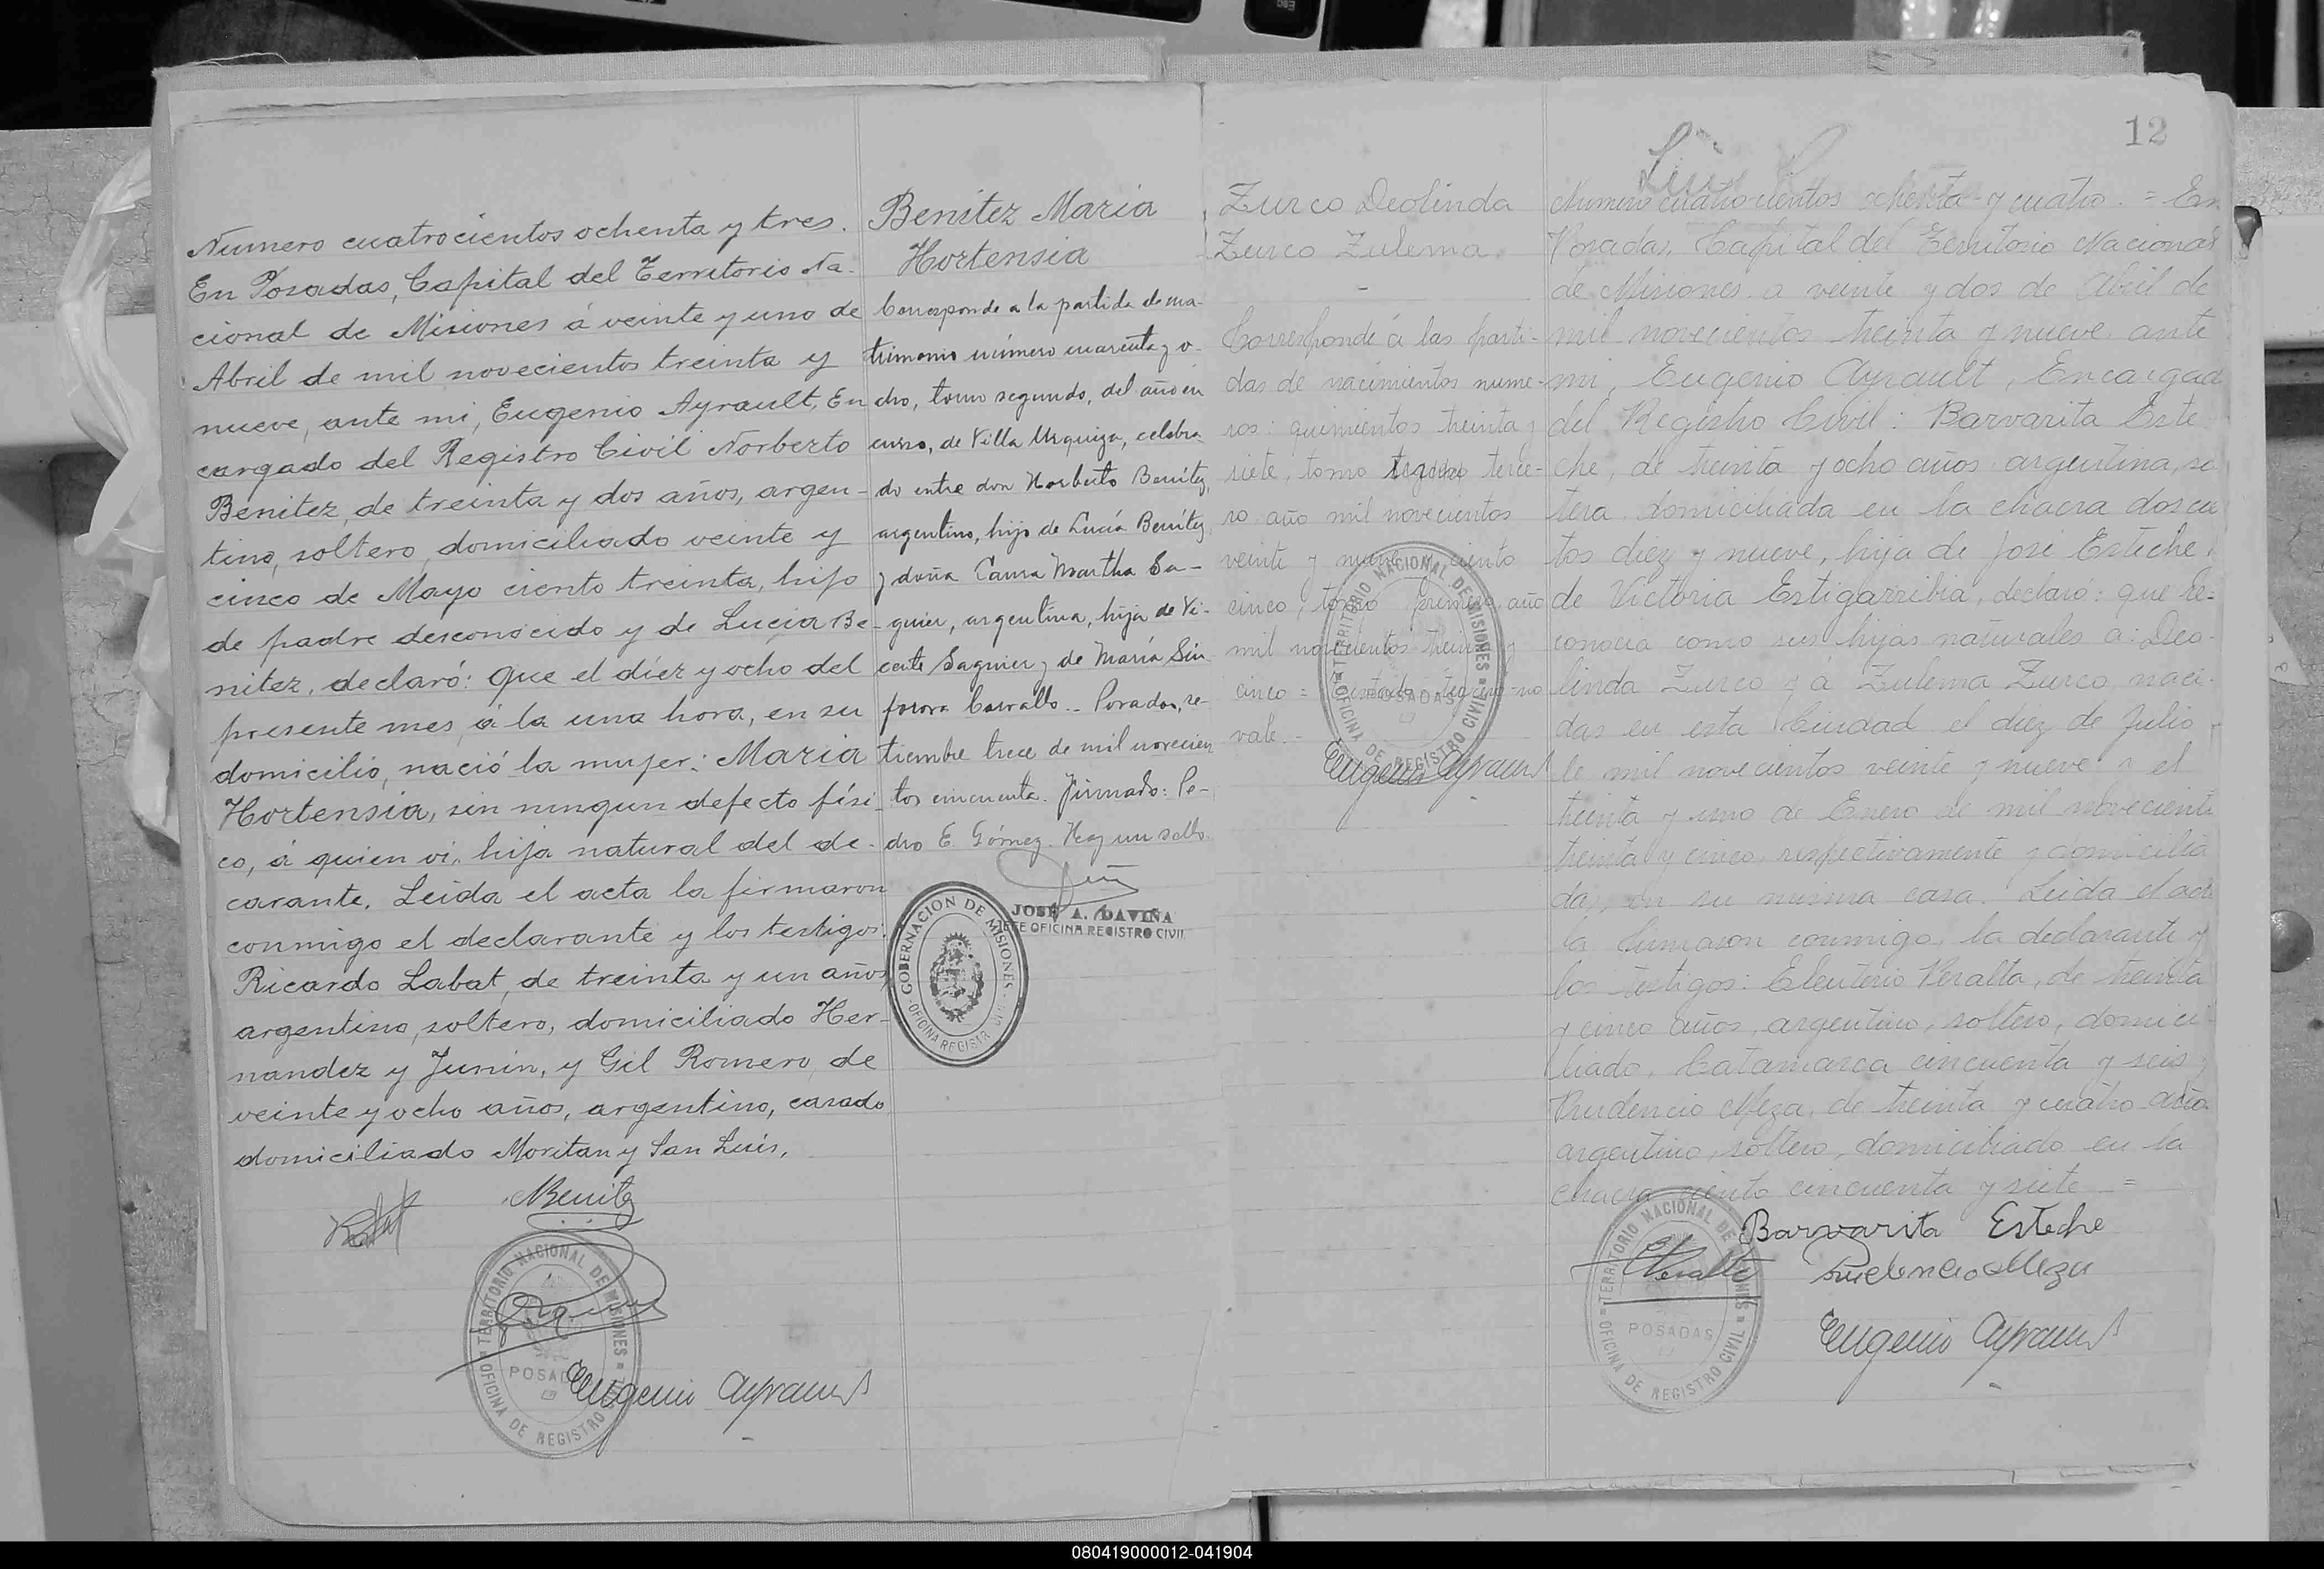 Numero cuatrocientos ochenta y tres.
En Posadas, Capital del Territorio Na-
cional de Misiones á veinte y uno de
Abril de mil novecientos treinta y
nueve, ante mi, Eugenio Ayrault, En
cargado del Registro Civil Norberto
Benitez, de treinta y dos años, argen-
tino, soltero, domiciliado veinte y
cinco de Mayo ciento treinta, hijo
de padre desconocido y de Lucia Be-
nitez, declaró: Que el diez y ocho del
presente mes, á la una hora, en su
domicilio, nació la mujer: Maria
Hortensia, sin ningun defecto físi-
co, á quien vi, hija natural del de-
carante. Leida el acta la firmaron
conmigo el declarante y los testigos:
Ricardo Labat, de treinta y un años,
argentino, soltero, domiciliado Her-
nandez y Junin, y Gil Romero, de
veinte y ocho años, argentino, casado
domiciliado Moritan y San Luis,
NBenitz
TERRITORIO NACIONAL DE MISIONES
POSADAS
OFICINA DE REGISTRO CIVIL
Eugenio Ayrault
Benitez Maria
Hortensia
Corresponde a la partida de ma-
trimonio número cuarenta y o-
cho, tomo segundo, del año en
curso, de Villa Urquiza, celebra
do entre don Norberto Benítez,
argentino, hijo de Lucía Benítez
y doña Laura Martha Sa-
guier, argentina, hija de Vi-
cente Saguier y de María Sin
forosa Carvallo.- Posadas, se-
tiembre trece de mil novecien
tos cincuenta. Firmado: Pe-
dro E. Gómez. Hay un sello.
JOSÉ A. DAVIÑA
JEFE OFICINA REGISTRO CIVIL
GOBERNACION DE MISIONES
OFICINA REGISTRO CIVIL
Zurco Deolinda
Zurco Zulema.
Corresponde á las parti-
das de nacimientos nume-
ros: quinientos treinta y
siete, tomo terce-
ro año mil novecientos
veinte y nueve y ciento
cinco, tomo primero, año
mil novecientos treinta y
cinco = no
vale.-
TERRITORIO NACIONAL DE MISIONES
POSADAS
OFICINA DE REGISTRO CIVIL
Eugenio Ayrault
12
Numero cuatrocientos ochenta y cuatro. = En
Posadas, Capital del Territorio Nacional
de Misiones a veinte y dos de Abril de
mil novecientos treinta y nueve, ante
mi, Eugenio Ayrault, Encargad
del Registro Civil: Barvarita Este-
che, de treinta y ocho años, argentina, so
tera, domiciliada en la chacra doscie
tos diez y nueve, hija de José Esteche,
de Victoria Estigarribia, declaró: que re-
conocia como sus hijas naturales a: Deo-
linda Zurco y á Zulema Zurco, naci-
das en esta Ciudad el diez de Julio
de mil novecientos veinte y nueve y el
treinta y uno de Enero de mil noveciento
treinta y cinco, respectivamente y domicilia
das en su misma casa. Leida el acta
la firmaron conmigo, la declarante y
los testigos: Eleuterio Peralta, de treinta
y cinco años, argentino, soltero, domici-
liado, Catamarca cincuenta y seis y
Prudencio Meza, de treinta y cuatro años
argentino, soltero, domiciliado en la
chacra ciento cincuenta y siete =
Barvarita Esteche
EPeralta
Prudencio Meza
TERRITORIO NACIONAL DE MISIONES
POSADAS
OFICINA DE REGISTRO CIVIL
Eugenio Ayrault
080419000012-041904